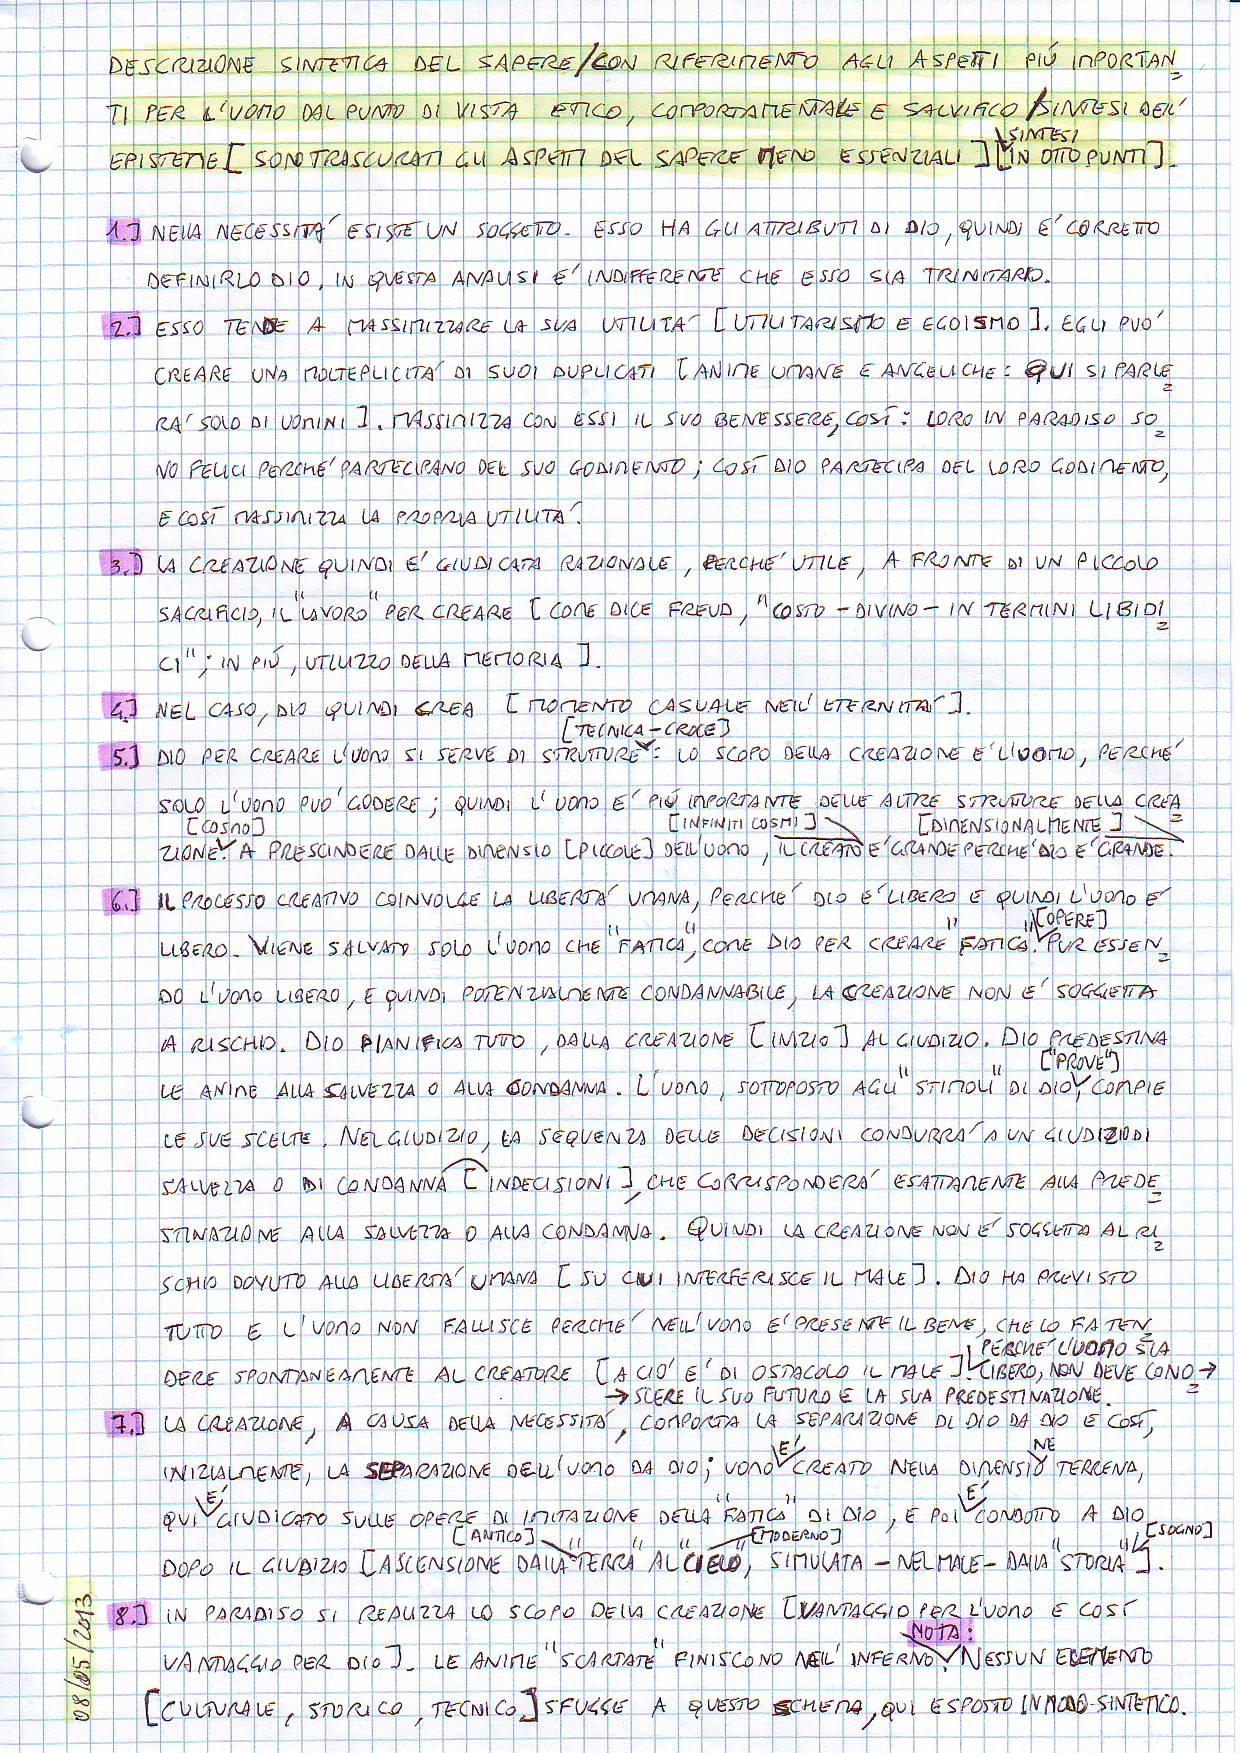 DESCRIZIONE SINTETICA DEL SAPERE/CON RIFERIMENTO AGLI ASPETTI PIÚ IMPORTAN=
TI PER L'UOMO DAL PUNTO DI VISTA ETICO, COMPORTAMENTALE E SALVIFICO/SINTESI DELL'
SINTESI
EPISTEME [SONO TRASCURATI GLI ASPETTI DEL SAPERE MENO ESSENZIALI] [IN OTTO PUNTI].
1.] NELLA NECESSITÁ ESISTE UN SOGGETTO. ESSO HA GLI ATTRIBUTI DI DIO, QUINDI É CORRETTO
DEFINIRLO DIO, IN QUESTA ANALISI É INDIFFERENTE CHE ESSO SIA TRINITARIO.
2.] ESSO TENDE A MASSIMIZZARE LA SUA UTILITÁ [UTILITARISMO E EGOISMO]. EGLI PUÓ
CREARE UNA MOLTEPLICITÁ DI SUOI DUPLICATI [ANIME UMANE E ANGELICHE: QUI SI PARLE=
RÁ SOLO DI UOMINI]. MASSIMIZZA CON ESSI IL SUO BENESSERE, COSÍ: LORO IN PARADISO SO=
NO FELICI PERCHÉ PARTECIPANO DEL SUO GODIMENTO; COSÍ DIO PARTECIPA DEL LORO GODIMENTO,
E COSÍ MASSIMIZZA LA PROPRIA UTILITÁ.
3.] LA CREAZIONE QUINDI É GIUDICATA RAZIONALE, PERCHÉ UTILE, A FRONTE DI UN PICCOLO
SACRIFICIO, IL "LAVORO" PER CREARE [COME DICE FREUD, "COSTO - DIVINO - IN TERMINI LIBIDI=
CI"; IN PIÚ, UTILIZZO DELLA MEMORIA].
4.] NEL CASO, DIO QUINDI CREA [MOMENTO CASUALE NELL'ETERNITÁ].
[TECNICA-CROCE]
5.] DIO PER CREARE L'UOMO SI SERVE DI STRUTTURE: LO SCOPO DELLA CREAZIONE É L'UOMO, PERCHÉ
SOLO L'UOMO PUÓ GODERE; QUINDI L'UOMO É PIÚ IMPORTANTE DELLE ALTRE STRUTTURE DELLA CREA=
[COSMO] [INFINITI COSMI] [DIMENSIONALMENTE]
ZIONE. A PRESCINDERE DALLE DIMENSIO [PICCOLE] DELL'UOMO, IL CREATO É GRANDE PERCHÉ DIO É GRANDE.
6.] IL PROCESSO CREATIVO COINVOLGE LA LIBERTÁ UMANA, PERCHÉ DIO É LIBERO E QUINDI L'UOMO É
[OPERE]
LIBERO. VIENE SALVATO SOLO L'UOMO CHE "FATICA", COME DIO PER CREARE "FATICA". PUR ESSEN=
DO L'UOMO LIBERO, E QUINDI POTENZIALMENTE CONDANNABILE, LA CREAZIONE NON É SOGGETTA
A RISCHIO. DIO PIANIFICA TUTTO, DALLA CREAZIONE [INIZIO] AL GIUDIZIO. DIO PREDESTINA
["PROVE"]
LE ANIME ALLA SALVEZZA O ALLA CONDANNA. L'UOMO, SOTTOPOSTO AGLI "STIMOLI" DI DIO, COMPIE
LE SUE SCELTE. NEL GIUDIZIO, LA SEQUENZA DELLE DECISIONI CONDURRÁ A UN GIUDIZIO DI
SALVEZZA O DI CONDANNA [INDECISIONI], CHE CORRISPONDERÁ ESATTAMENTE ALLA PREDE=
STINAZIONE ALLA SALVEZZA O ALLA CONDANNA. QUINDI LA CREAZIONE NON É SOGGETTA AL RI=
SCHIO DOVUTO ALLA LIBERTÁ UMANA [SU CUI INTERFERISCE IL MALE]. DIO HA PREVISTO
TUTTO E L'UOMO NON FALLISCE PERCHÉ NELL'UOMO É PRESENTE IL BENE, CHE LO FA TEN=
PERCHÉ L'UOMO SIA
DERE SPONTANEAMENTE AL CREATORE [A CIÓ É DI OSTACOLO IL MALE]. LIBERO, NON DEVE CONO= →
→ SCERE IL SUO FUTURO E LA SUA PREDESTINAZIONE.
7.] LA CREAZIONE, A CAUSA DELLA NECESSITÁ, COMPORTA LA SEPARAZIONE DI DIO DA DIO E COSÍ,
É NE
INIZIALMENTE, LA SEPARAZIONE DELL'UOMO DA DIO; UOMO CREATO NELLA DIMENSIO TERRENA,
É É
QUI GIUDICATO SULLE OPERE DI IMITAZIONE DELLA "FATICA" DI DIO, E POI CONDOTTO A DIO
[ANTICO] [MODERNO] [SOGNO]
DOPO IL GIUDIZIO [ASCENSIONE DALLA "TERRA" AL "CIELO", SIMULATA - NEL MALE - DALLA "STORIA"].
8.] IN PARADISO SI REALIZZA LO SCOPO DELLA CREAZIONE [VANTAGGIO PER L'UOMO E COSÍ
NOTA:
VANTAGGIO PER DIO]. LE ANIME "SCARTATE" FINISCONO NELL'INFERNO. NESSUN ELEMENTO
[CULTURALE, STORICO, TECNICO] SFUGGE A QUESTO SCHEMA, QUI ESPOSTO IN MODO SINTETICO.
08/05/2013